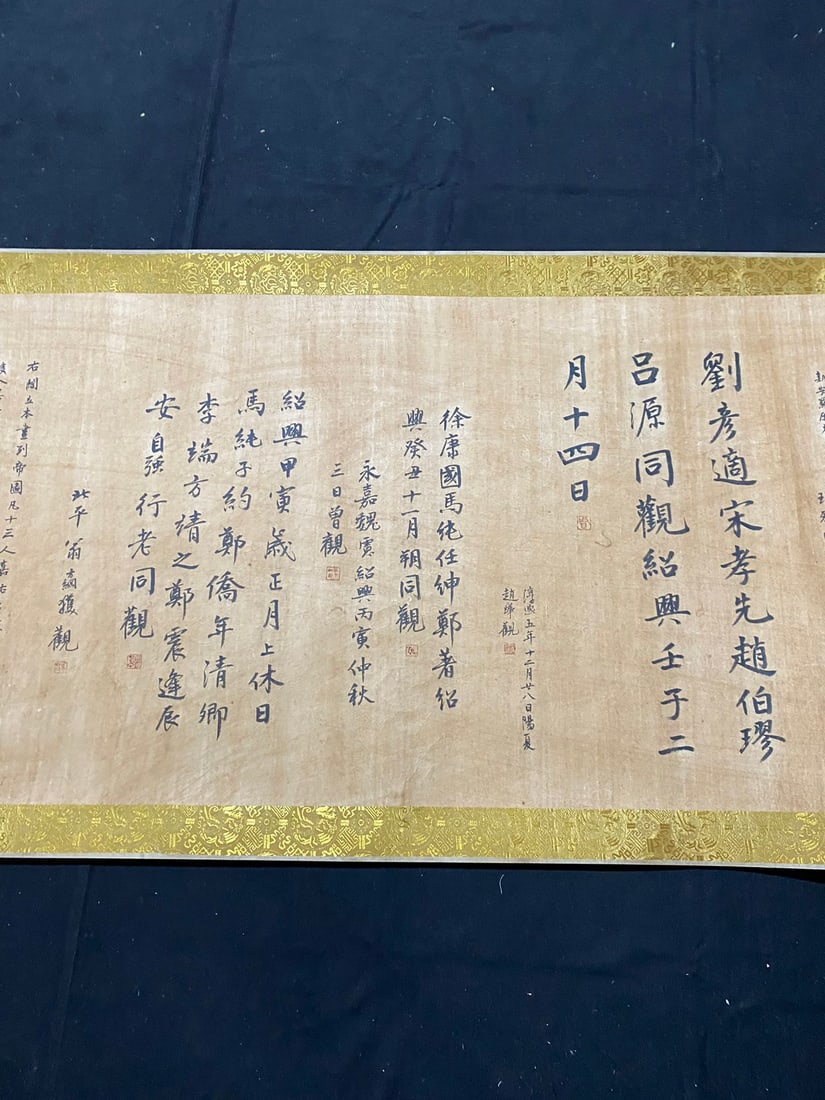 劉彥適宋孝先趙伯璆
呂源同觀紹興壬子二
月十四日
淳熙五年十二月廿八日陽夏
趙 觀
徐康國馬純任紳鄭著紹
興癸丑十一月朔同觀
永嘉魏 紹興丙寅仲秋
三日曾觀
紹興甲寅歲正月上休日
馬純子約鄭僑年清卿
李端方靖之鄭震逢辰
安自強行老同觀
北平翁 獲觀
右閻立本畫列帝圖凡十三人嘉